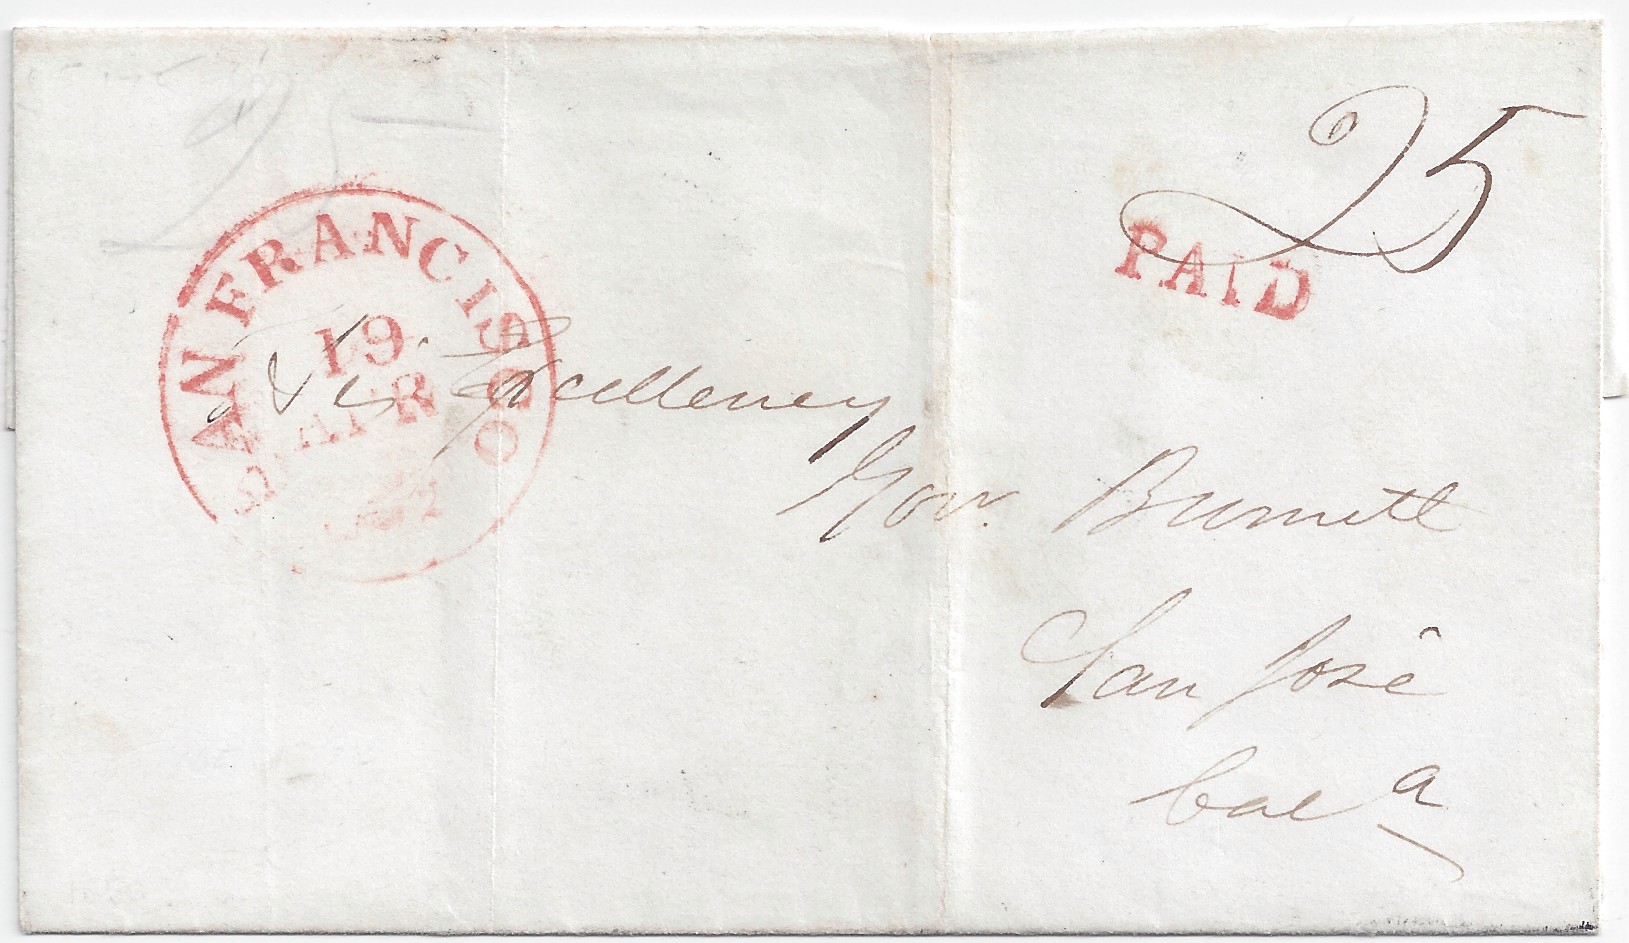 25
25
PAID
SAN FRANCISCO
19
APR
His Excellency
Gov. Burnett
San José
Cal a